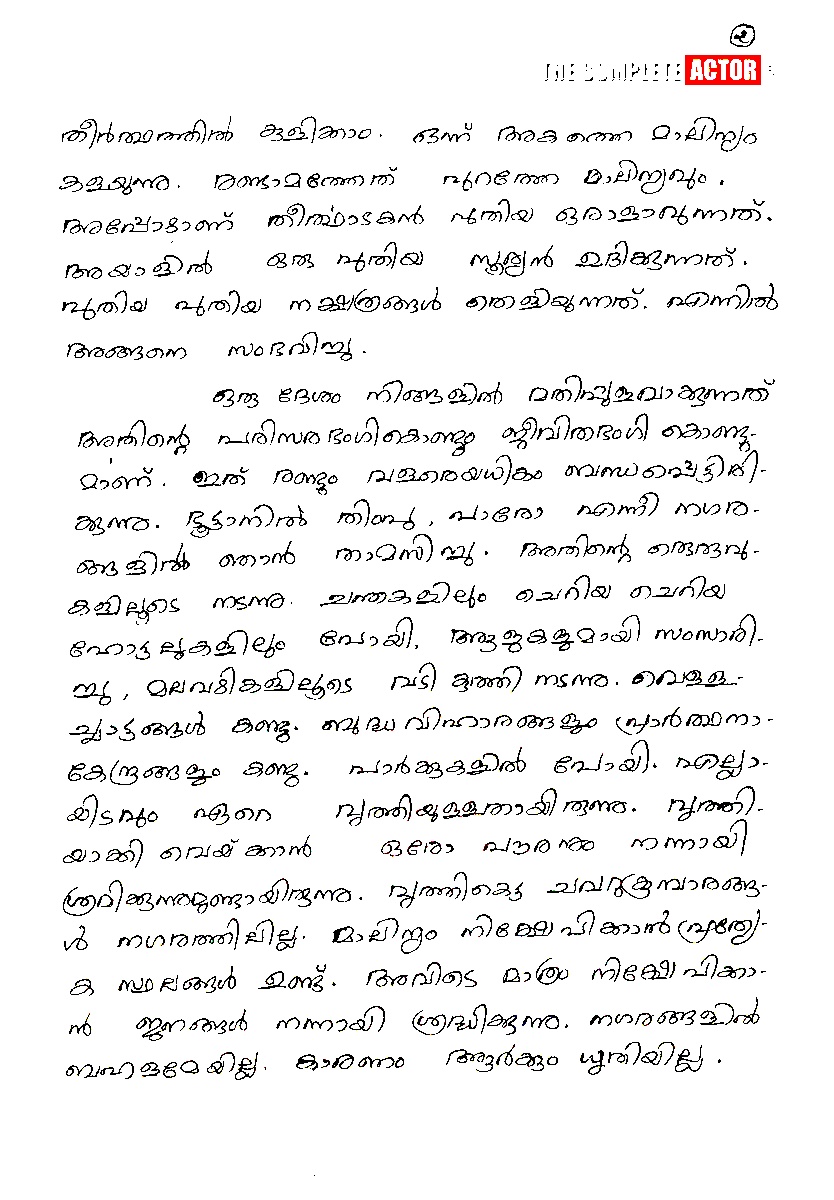 2
THE COMPLETE ACTOR
തീർത്ഥത്തിൽ കുളിക്കാം. ഒന്ന് അകത്തെ മാലിന്യം
കളയുന്നു. രണ്ടാമത്തേത് പുറത്തേ മാലിന്യവും.
അപ്പോഴാണ് തീർത്ഥാടകൻ പുതിയ ഒരാളാവുന്നത്.
അയാളിൽ ഒരു പുതിയ സൂര്യൻ ഉദിക്കുന്നത്.
പുതിയ പുതിയ നക്ഷത്രങ്ങൾ തെളിയുന്നത്. എന്നിൽ
അങ്ങനെ സംഭവിച്ചു.
ഒരു ദേശം നിങ്ങളിൽ മതിപ്പുളവാക്കുന്നത്
അതിന്റെ പരിസരഭംഗികൊണ്ടും ജീവിതഭംഗി കൊണ്ടു-
മാണ്. ഇത് രണ്ടും വളരെയധികം ബന്ധപ്പെട്ടിരി-
ക്കുന്നു. ഭൂട്ടാനിൽ തിംബു, പാരോ എന്നീ നഗര-
ങ്ങളിൽ ഞാൻ താമസിച്ചു. അതിന്റെ തെരുവു-
കളിലൂടെ നടന്നു. ചന്തകളിലും ചെറിയ ചെറിയ
ഹോട്ടലുകളിലും പോയി, ആളുകളുമായി സംസാരി-
ച്ചു, മലവഴികളിലൂടെ വടി കുത്തി നടന്നു. വെള്ള-
ച്ചാട്ടങ്ങൾ കണ്ടു. ബുദ്ധവിഹാരങ്ങളും പ്രാർത്ഥനാ-
കേന്ദ്രങ്ങളും കണ്ടു. പാർക്കുകളിൽ പോയി. എല്ലാ-
യിടവും ഏറെ വൃത്തിയുള്ളതായിരുന്നു. വൃത്തി-
യാക്കി വെയ്ക്കാൻ ഒരോ പൗരനും നന്നായി
ശ്രമിക്കുന്നുമുണ്ടായിരുന്നു. വൃത്തികെട്ട ചവറുകൂമ്പാരങ്ങ-
ൾ നഗരത്തിലില്ല. മാലിന്യം നിക്ഷേപിക്കാൻ പ്രത്യേ-
ക സ്ഥലങ്ങൾ ഉണ്ട്. അവിടെ മാത്രം നിക്ഷേപിക്കാ-
ൻ ജനങ്ങൾ നന്നായി ശ്രദ്ധിക്കുന്നു. നഗരങ്ങളിൽ
ബഹളമേയില്ല. കാരണം ആർക്കും ധൃതിയില്ല.